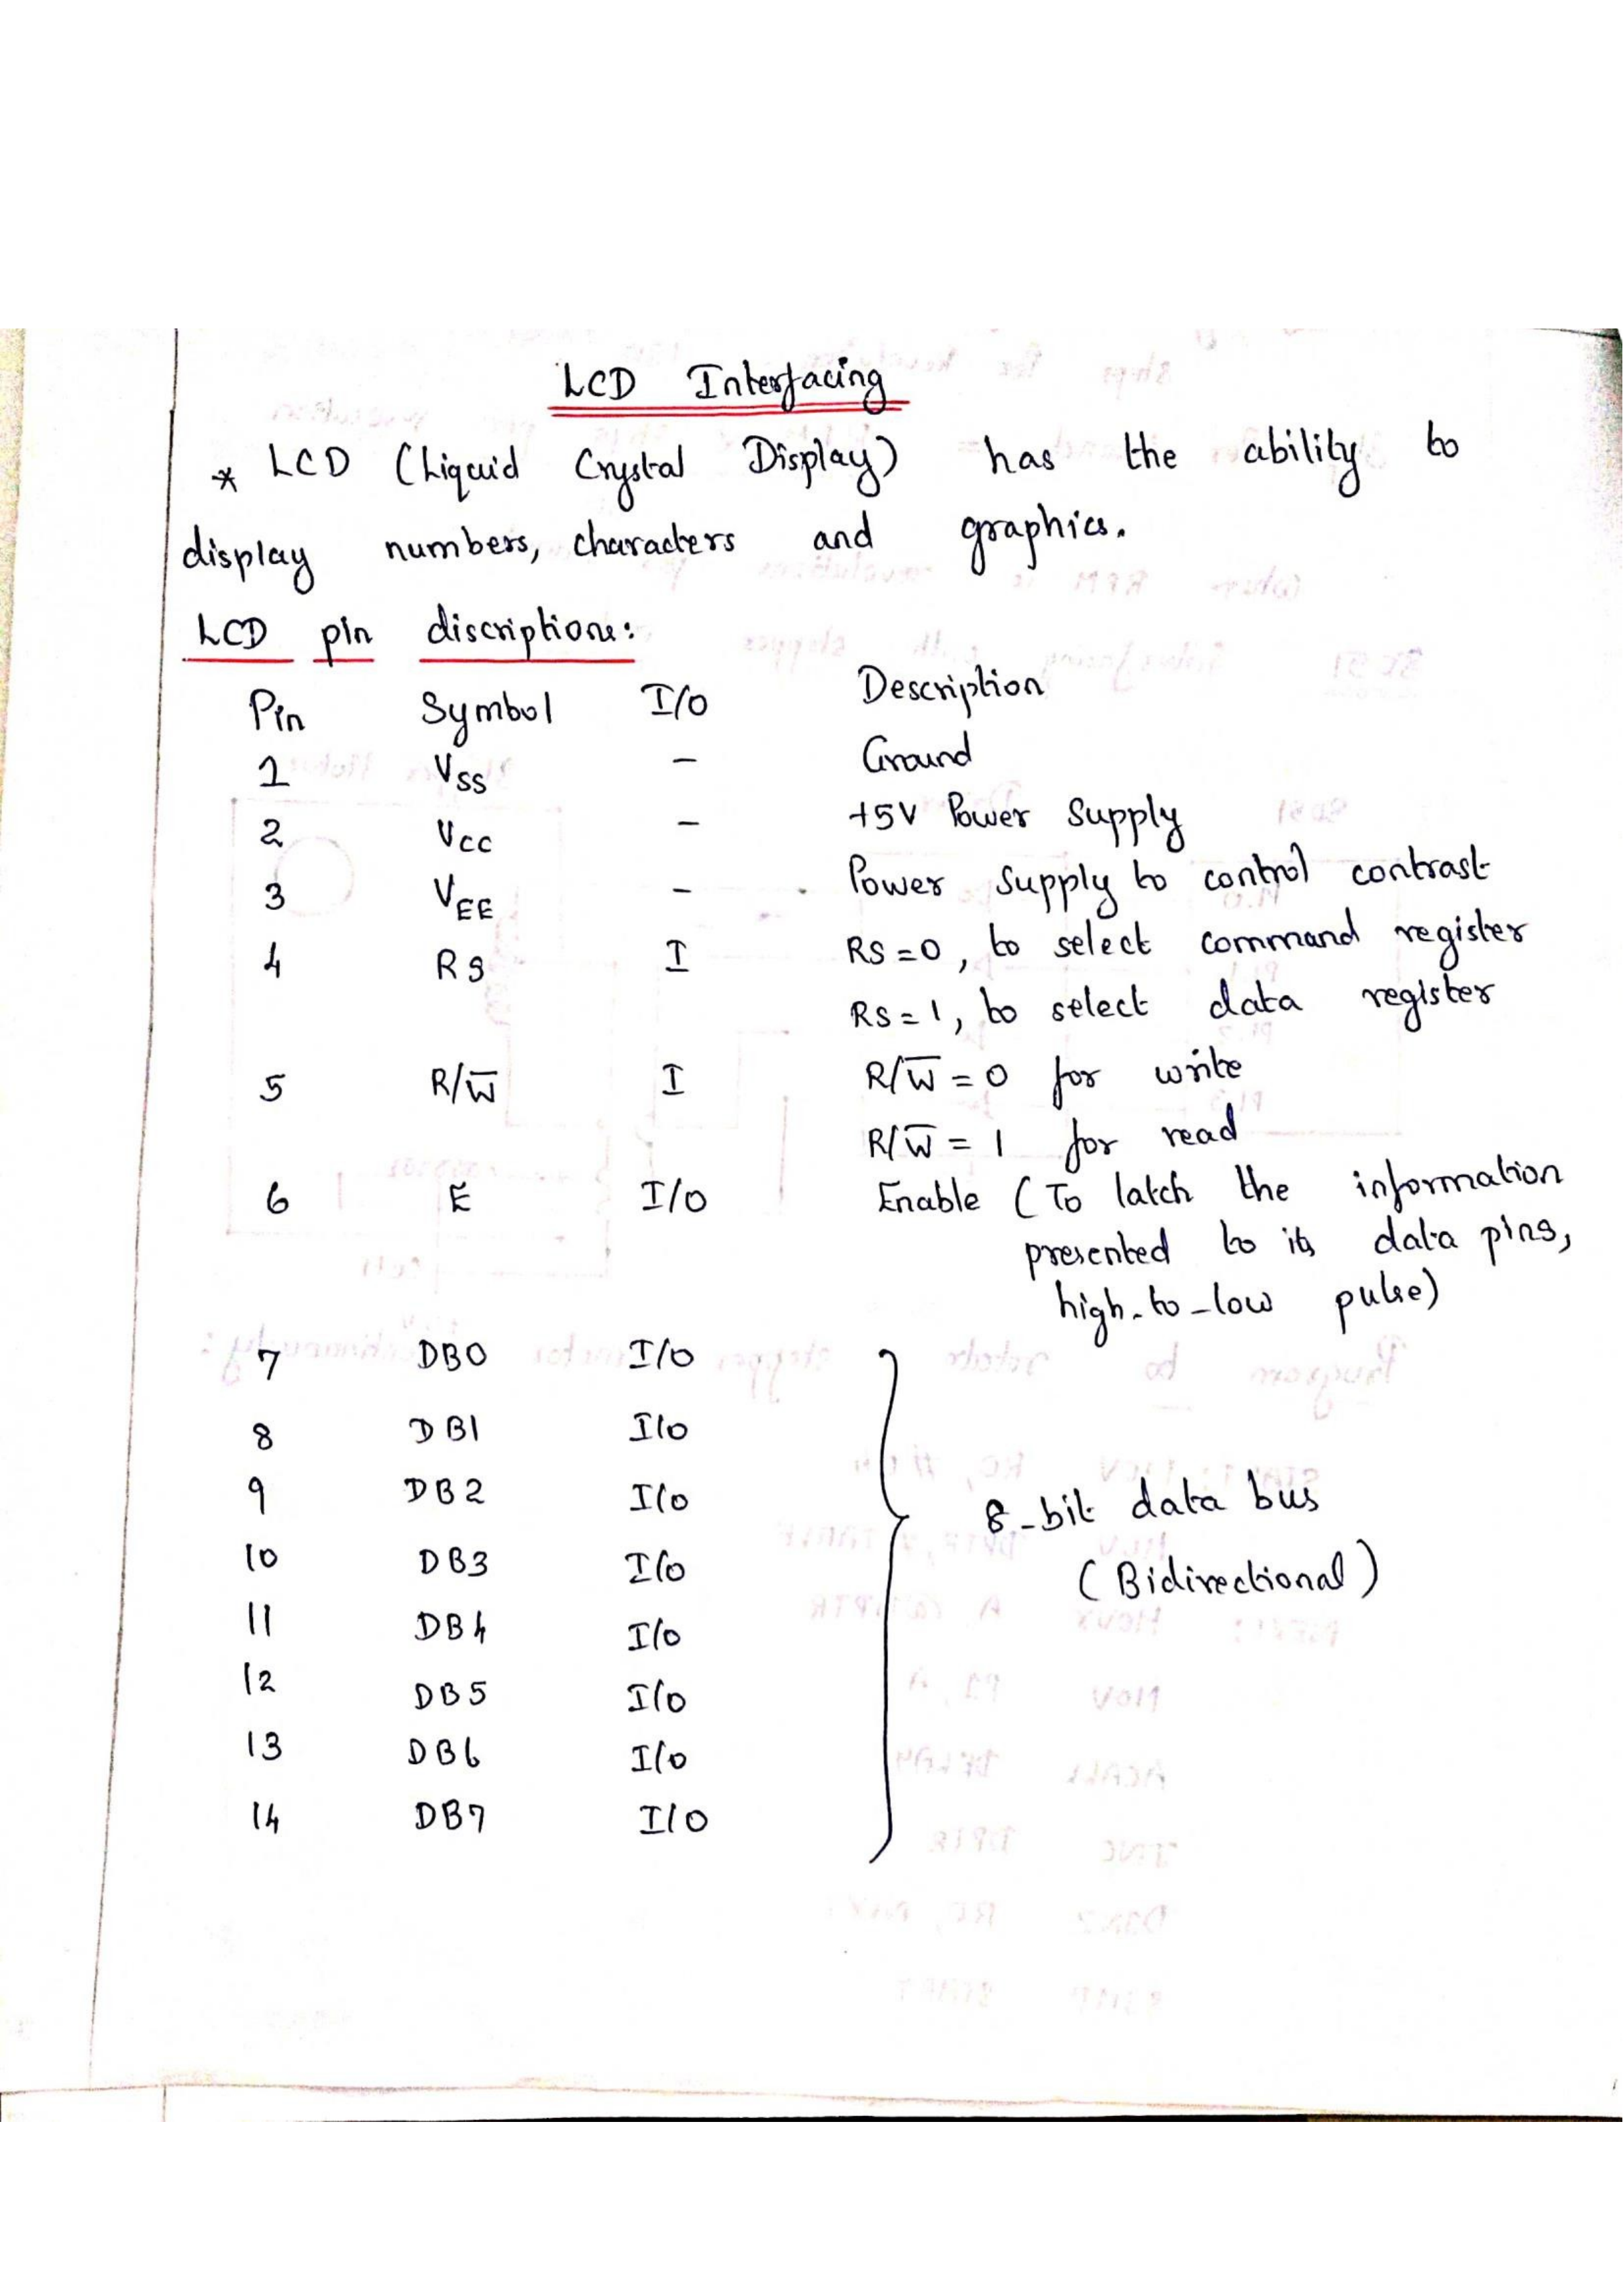 LCD Interfacing
* LCD (Liquid Crystal Display) has the ability to
display numbers, characters and graphics.
LCD pin discriptions:
Pin Symbol I/O Description
1 VSS - Ground
2 VCC - +5V Power Supply
3 VEE - Power Supply to control contrast
4 RS I RS=0, to select command register
RS=1, to select data register
5 R/W̅ I R/W̅ = 0 for write
R/W̅ = 1 for read
6 E I/O Enable (To latch the information
presented to its data pins,
high-to-low pulse)
7 DB0 I/O
8 DB1 I/O
9 DB2 I/O
8-bit data bus
10 DB3 I/O
(Bidirectional)
11 DB4 I/O
12 DB5 I/O
13 DB6 I/O
14 DB7 I/O